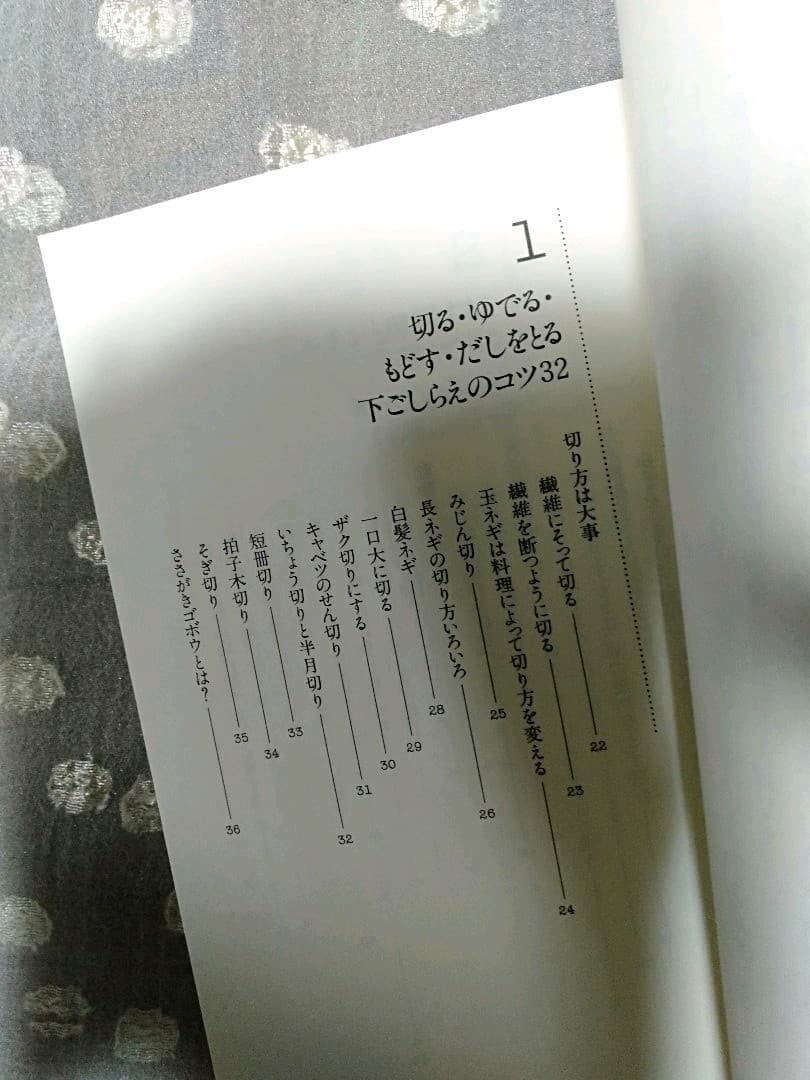 1
切る・ゆでる・
もどす・だしをとる
下ごしらえのコツ32
切り方は大事
繊維にそって切る 22
繊維を断つように切る 23
玉ネギは料理によって切り方を変える 24
みじん切り 25
長ネギの切り方いろいろ 26
白髪ネギ 28
一口大に切る 29
ザク切りにする 30
キャベツのせん切り 31
いちょう切りと半月切り 32
短冊切り 33
拍子木切り 34
そぎ切り 35
ささがきゴボウとは? 36